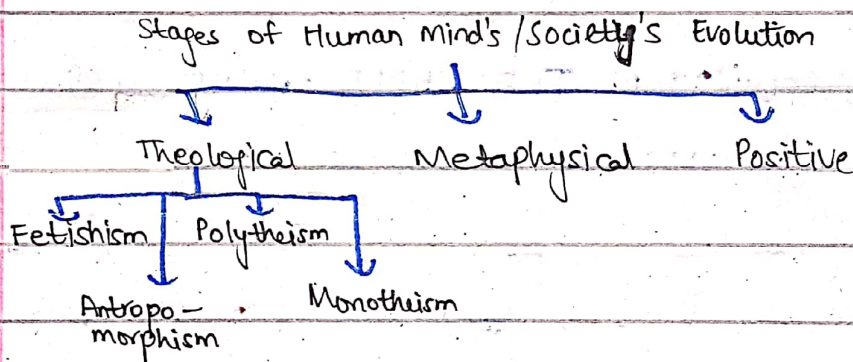 Stages of Human Mind's / Society's Evolution
Theological Metaphysical Positive
Fetishism Polytheism
Antropo-
morphism
Monotheism